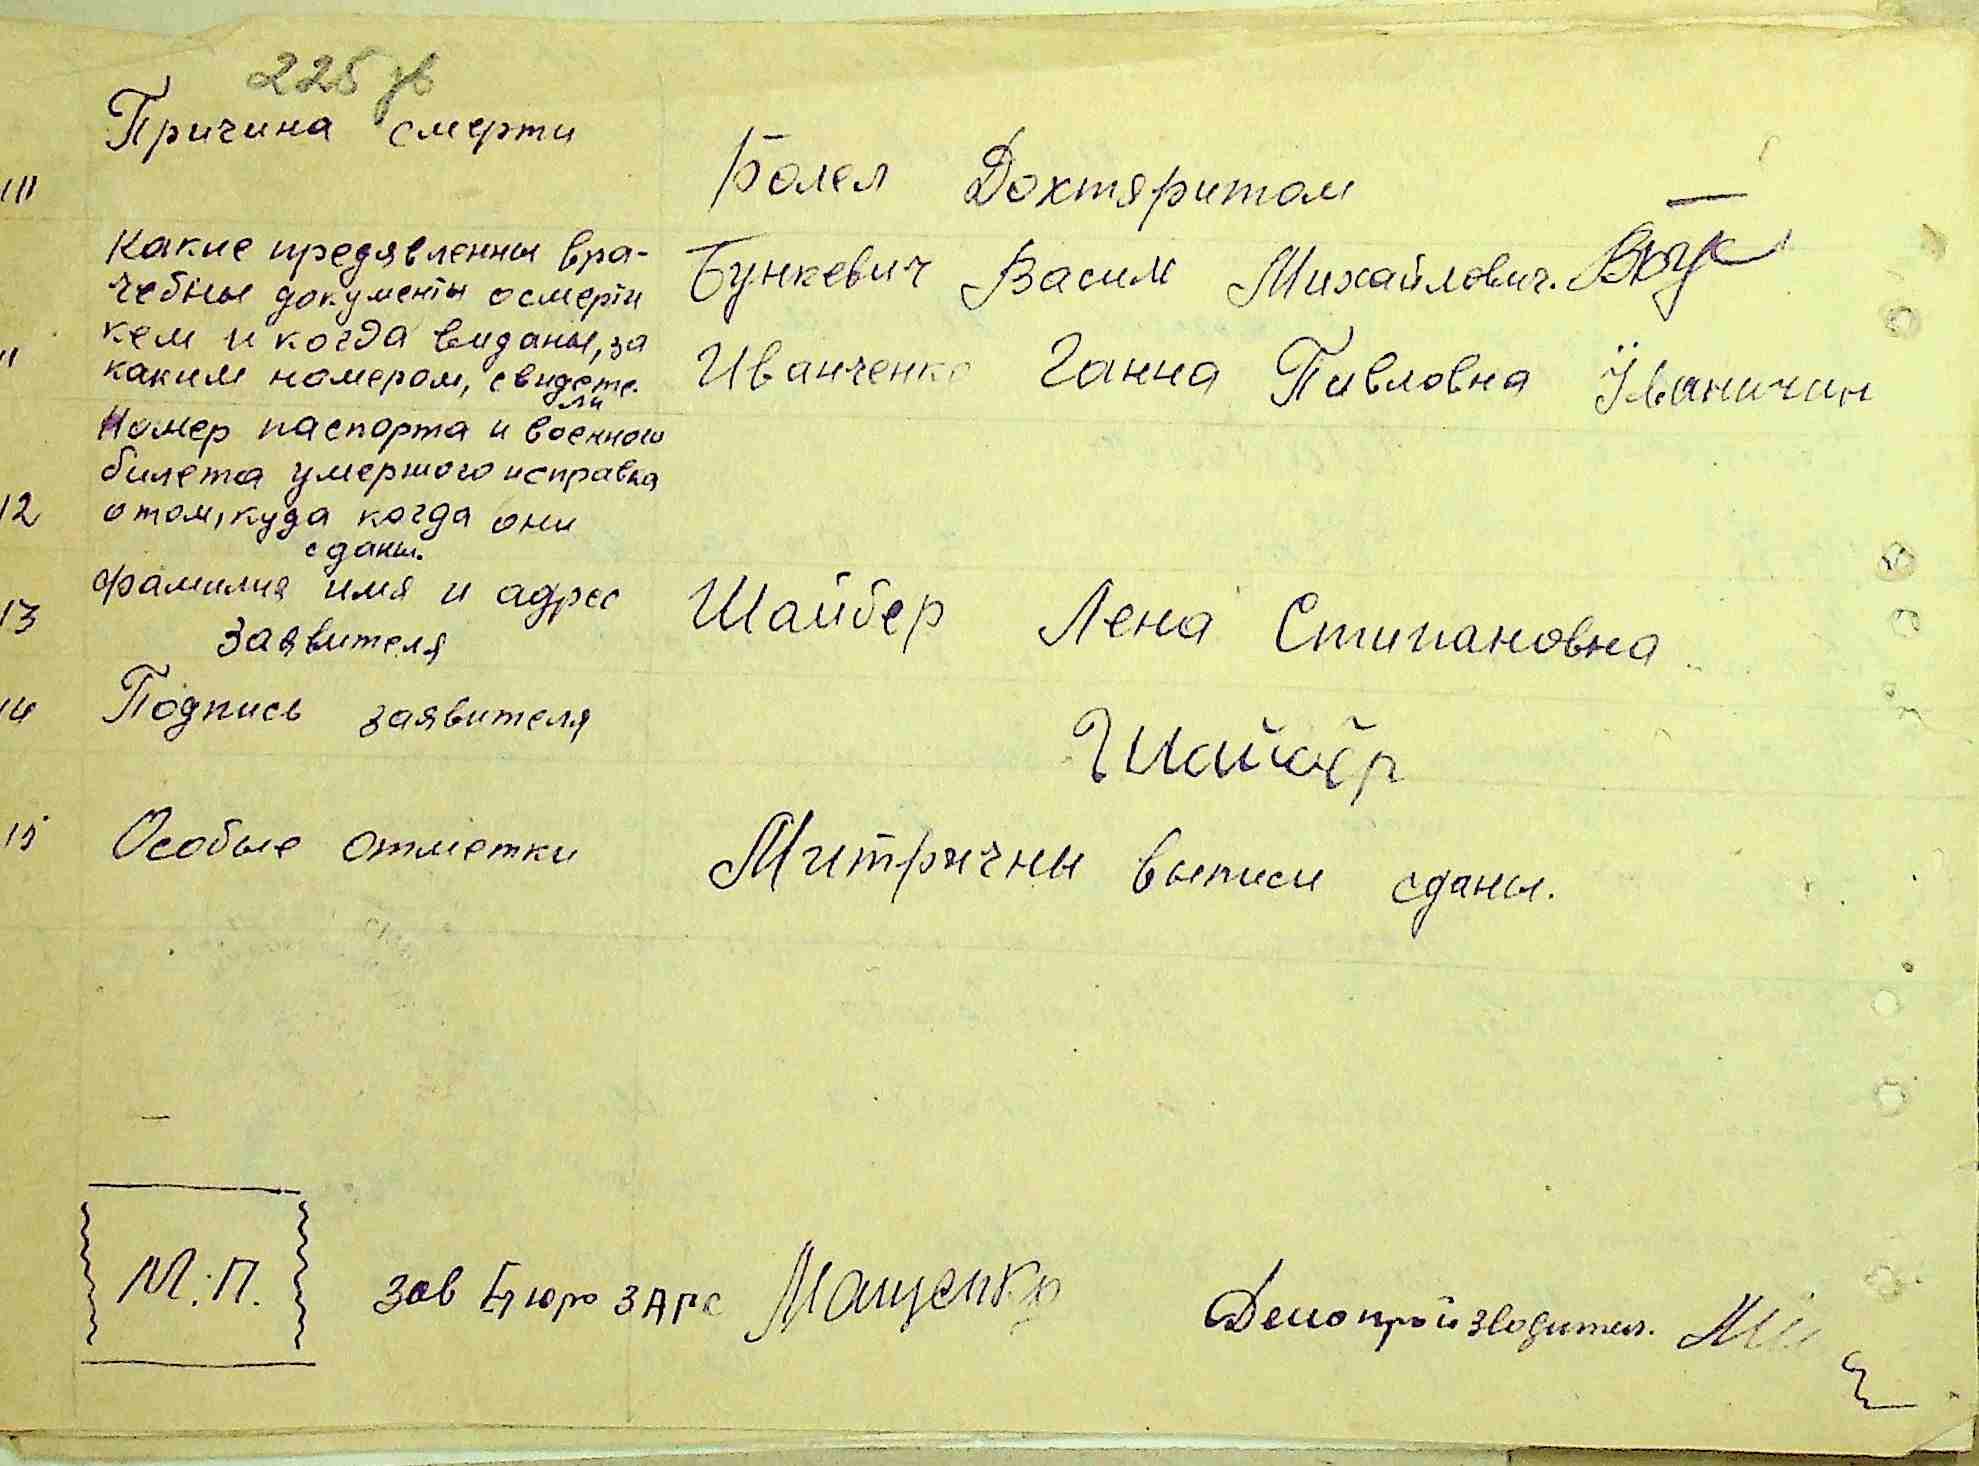 225 зв
Причина смерти
Болел Дохтяритом
Какие предявленны вра-
чебны документы осмерти
кем и когда виданы, за
каким номером, свидете-
ли
Бункевич Васил Михайлович.
Иванченко Ганна Павловна
12
Номер паспорта и военного
билета умершого исправка
отом, куда когда они
сданы.
13
фамилия имя и адрес
заявителя
Шайбер Лена Стипановна
14
Подпись заявителя
Шайбер
15
Особые отметки
Митричны выписи сданы.
М.П.
зав Бюро ЗАГС Мащенко
Делопройзводител.